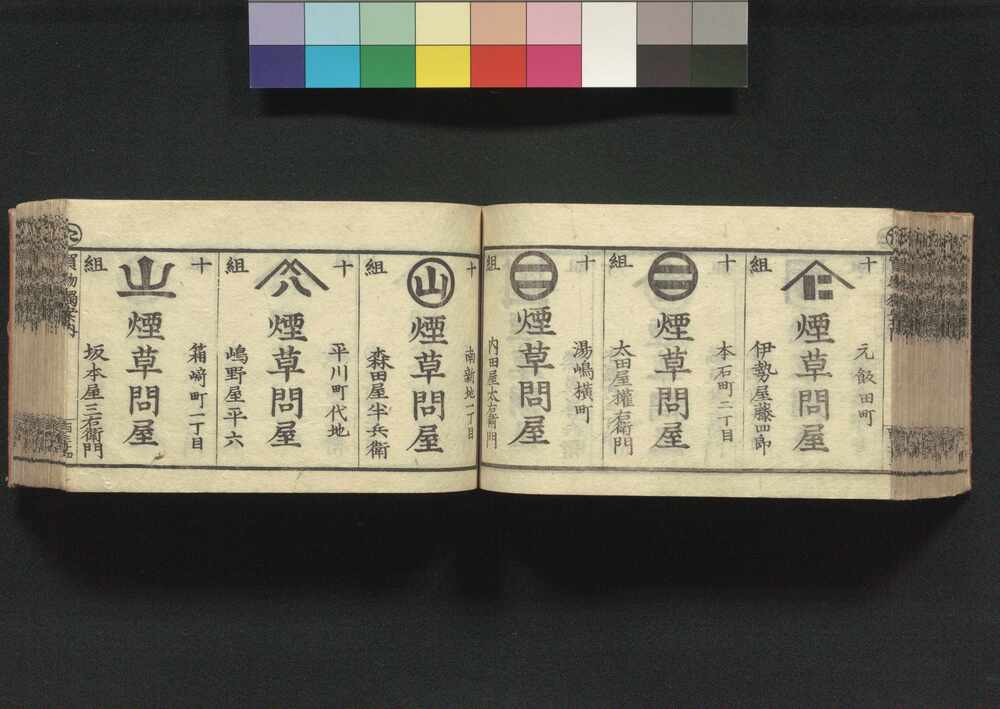 十
組
元飯田町
煙草問屋
伊勢屋藤四郎
十
組
本石町二丁目
煙草問屋
太田屋権右衛門
十
組
湯嶋横町
煙草問屋
内田屋太右衛門
十
組
南新地一丁目
山
煙草問屋
森田屋半兵衛
十
組
平川町代地
煙草問屋
嶋野屋平六
十
組
箱﨑町一丁目
山
煙草問屋
坂本屋三右衛門
た
買物獨案内